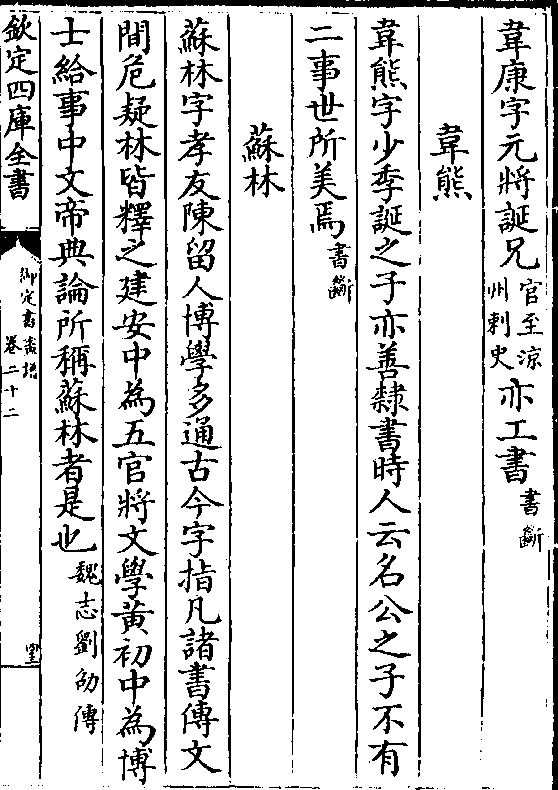 韋康字元將誕兄官至涼州刺史亦工書書斷
韋熊
韋熊字少季誕之子亦善隸書時人云名公之子不有
二事世所美焉書斷
蘇林
蘇林字孝友陳留人博學多通古今字指凡諸書傳文
間危疑林皆釋之建安中為五官將文學黃初中為博
士給事中文帝典論所稱蘇林者是也魏志劉劭傳
欽定四庫全書
御定書畫譜
卷二十二